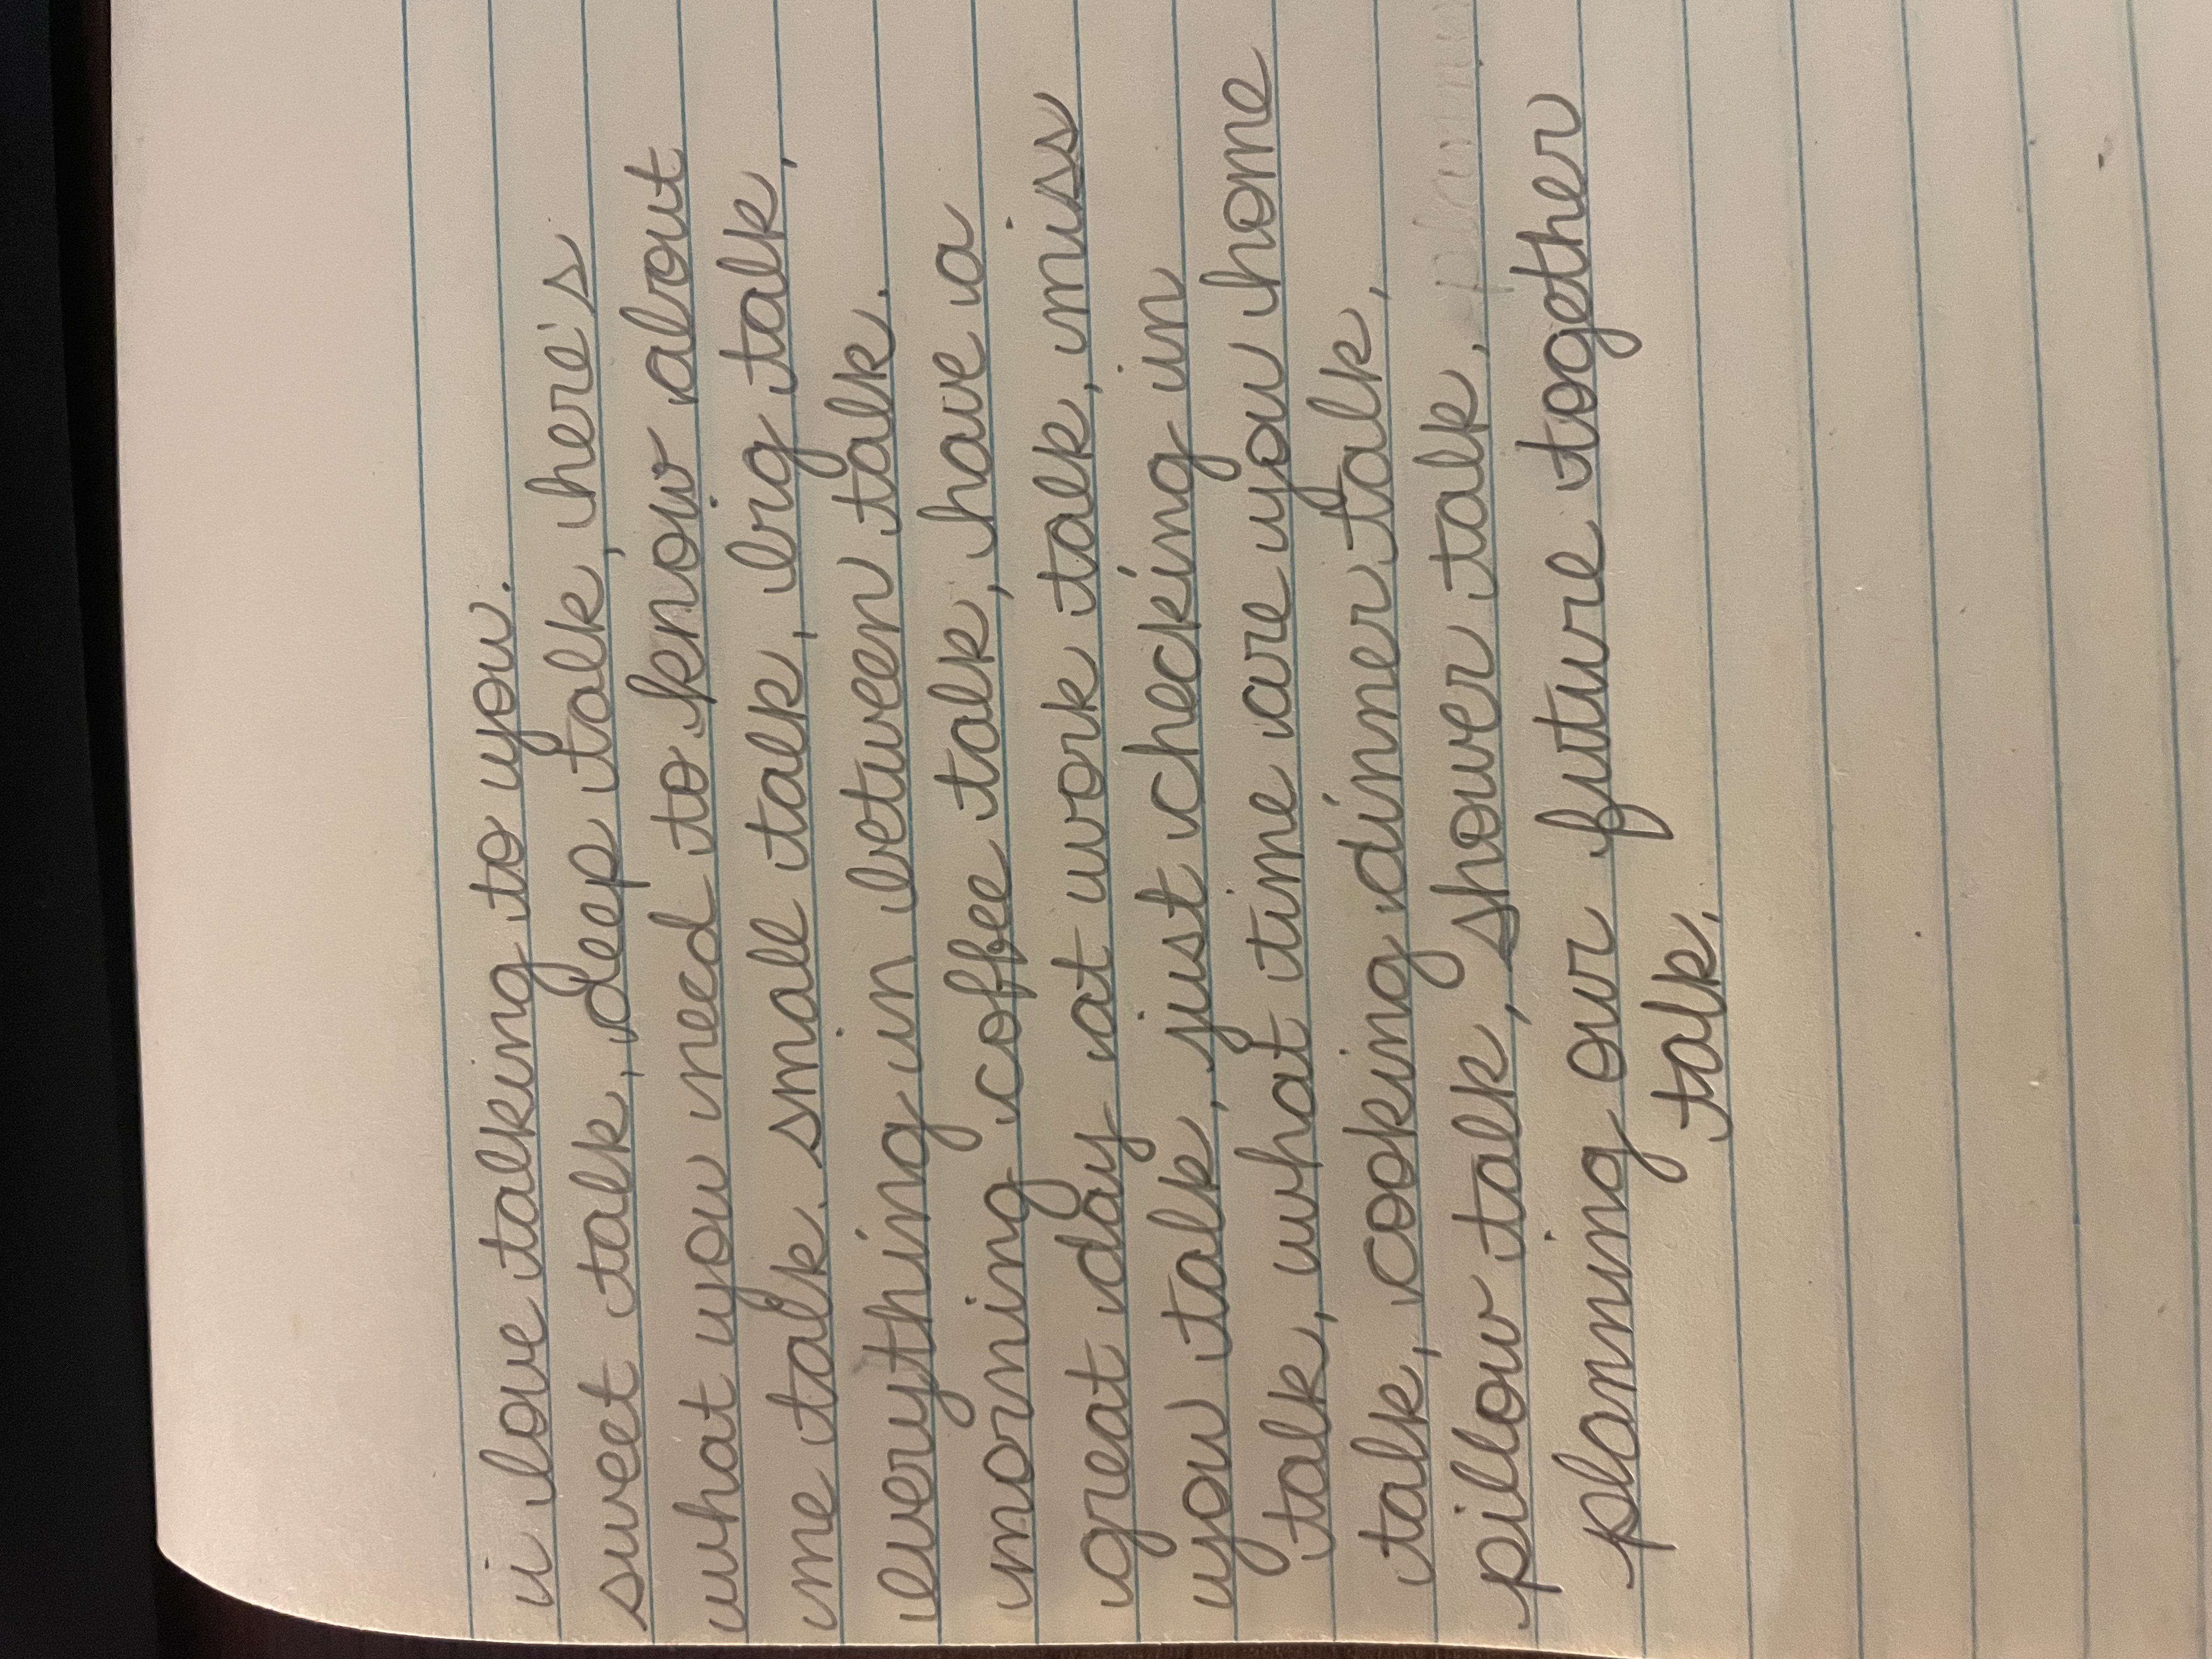 i love talking to you.
sweet talk, deep talk, here's
what you need to know about
me talk. small talk, big talk,
everything in between talk.
morning coffee talk, have a
great day at work talk, miss
you talk, just checking in
talk, what time are you home
talk, cooking dinner talk,
pillow talk, shower talk,
planning our future together
talk.